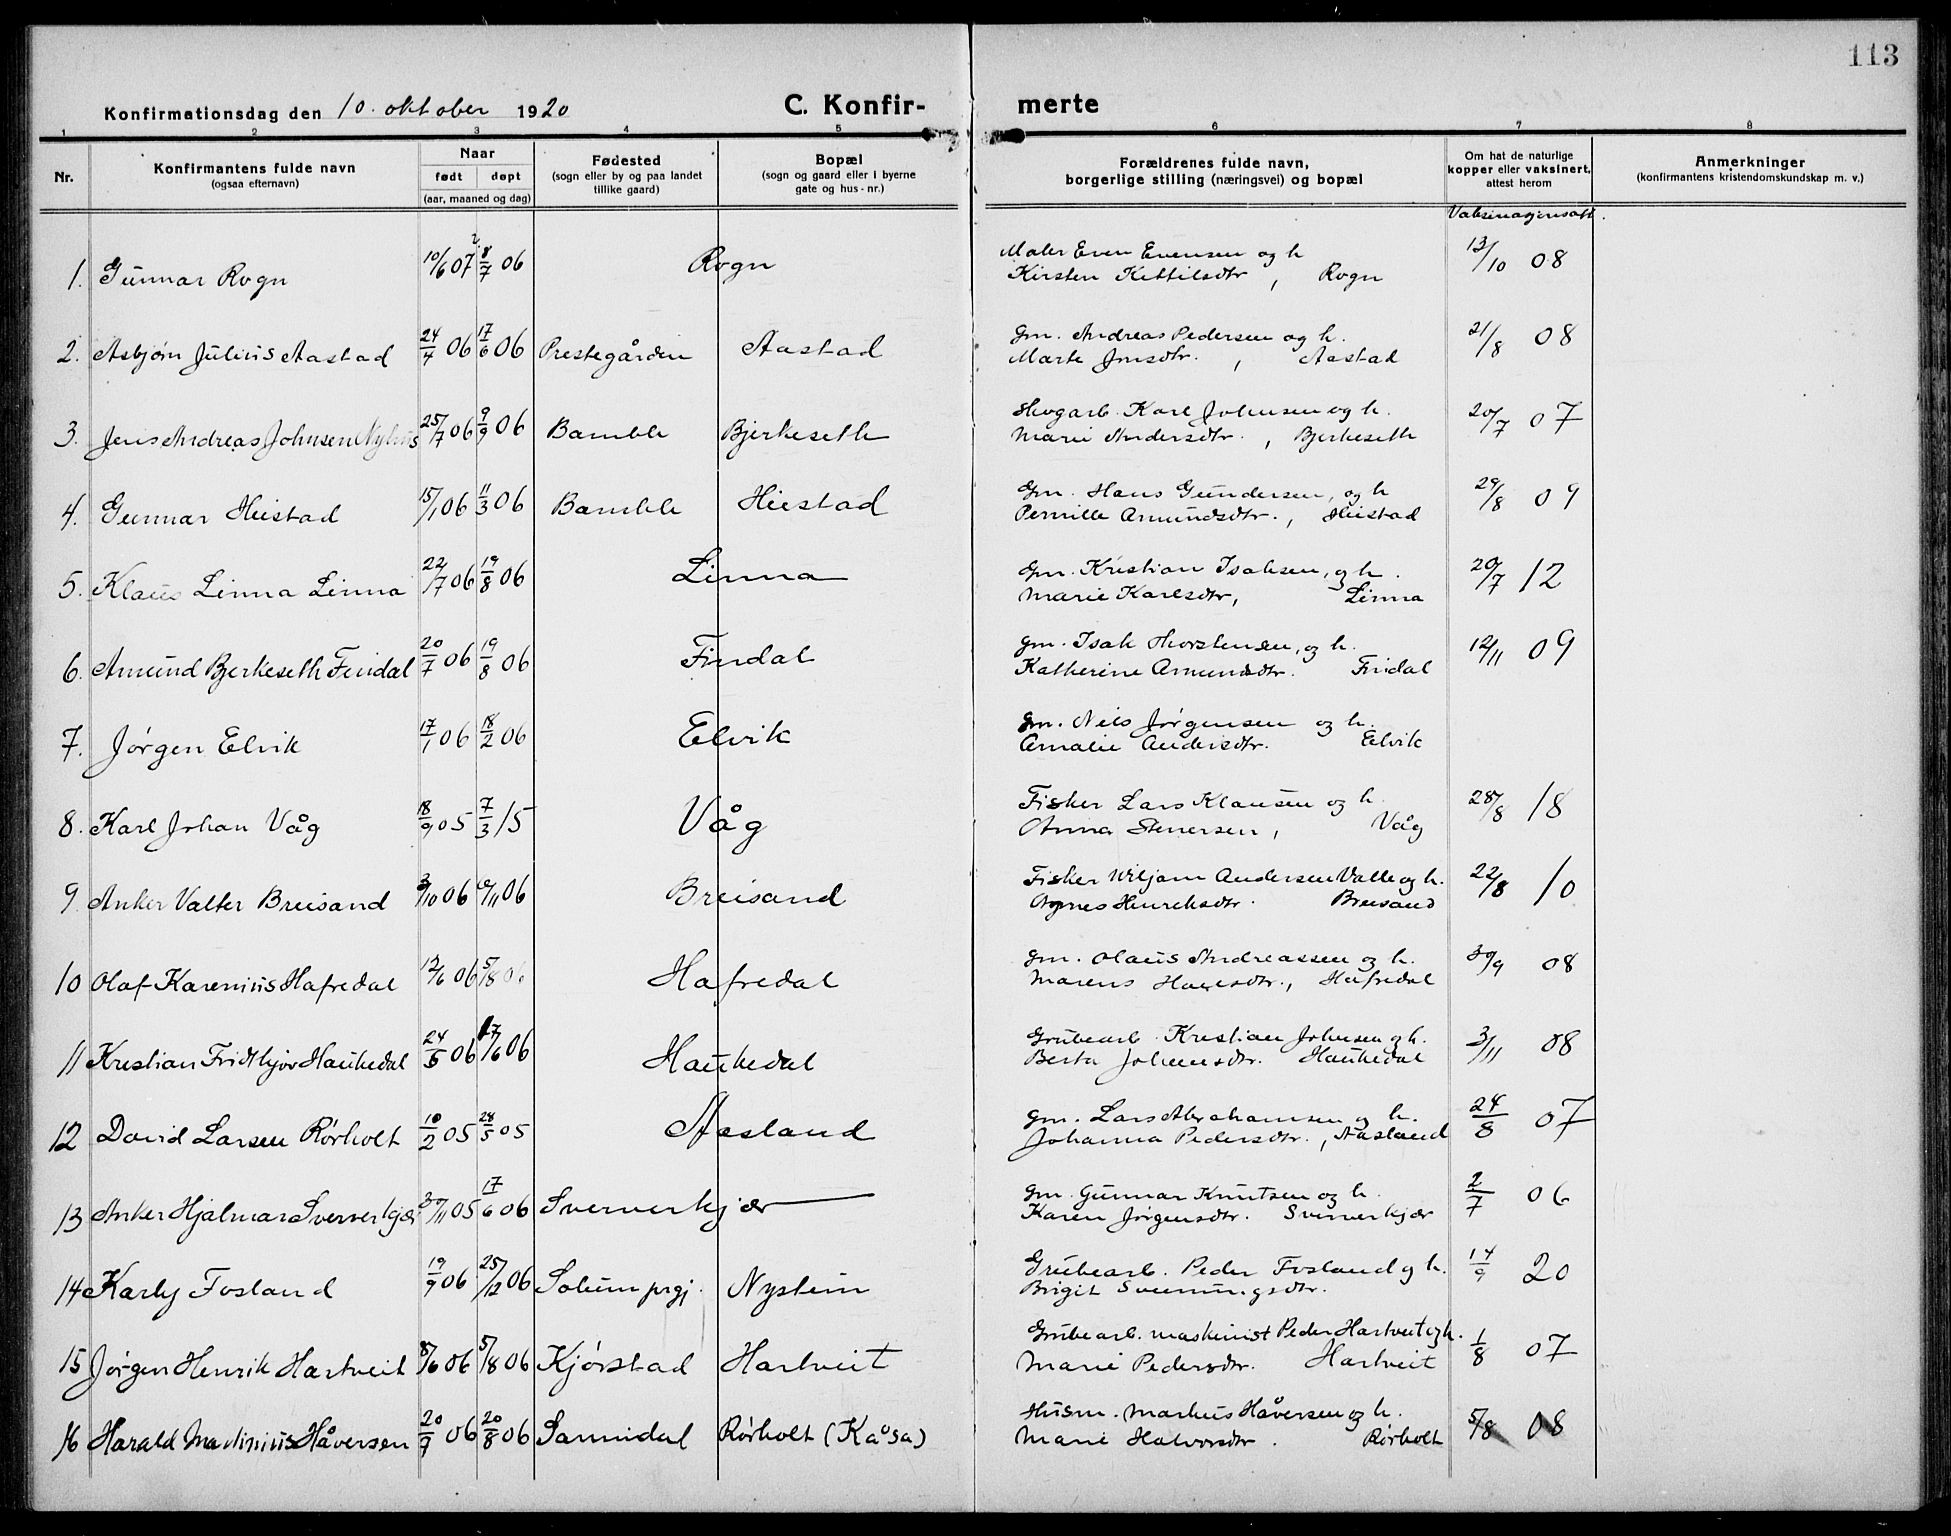 113
Konfirmationsdag den 10. oktober 1920
C. Konfir-
merte
1 2 3 4 5 6 7 8
Nr.
Konfirmantens fulde navn
(ogsaa efternavn)
Naar
født døpt
(aar, maaned og dag)
Fødested
(sogn eller by og paa landet
tillike gaard)
Bopæl
(sogn og gaard eller i byerne
gate og hus-nr.)
Forældrenes fulde navn,
borgerlige stilling (næringsvei) og bopæl
Om hat de naturlige
kopper eller vaksinert,
attest herom
Anmerkninger
(konfirmantens kristendomskundskap m. v.)
1. Gunnar Rogn 10/6 07 8/7 06 Rogn
Maler Even Evensen og h
Kirsten Kittilsdtr, Rogn
13/10 08
2. Asbjørn Julius Aastad 24/4 06 17/6 06 Prestegården Aastad
Gm. Andreas Pedersen og h.
Marte Jensdtr., Aastad
21/8 08
3. Jens Andreas Johnsen Nyhus 25/7 06 9/9 06 Bamble Bjerkeseth
Skogarb. Karl Johnsen og h.
Marie Andersdtr., Bjerkeseth
20/7 07
4. Gunnar Heistad 15/1 06 11/3 06 Bamble Heistad
Gm. Hans Gundersen, og h
Pernille Amundsdtr., Heistad
29/8 09
5. Klaus Linna Linna 22/7 06 19/8 06 Linna
Gm. Kristian Isaksen, og h.
Marie Karlsdtr, Linna
20/7 12
6. Amund Bjerkeseth Findal 20/7 06 19/8 06 Findal
Gm. Isak Thorstensen, og h.
Katherine Amundsdtr. Findal
12/11 09
7. Jørgen Elvik 17/1 06 18/2 06 Elvik
Gm. Nils Jørgensen og h.
Amalie Andersdtr. Elvik
8. Karl Johan Våg 18/9 05 7/3 15 Våg
Fisker Lars Klausen og h.
Anna Stenersen, Våg
28/8 18
9. Anker Valter Breisand 3/10 06 11 06 Breisand
Fisker Wiljam Andersen Valle og h.
Agnes Henriksdtr. Breisand
22/8 10
10 Olaf Karenius Hafredal 12/6 06 5/8 06 Hafredal
Gm. Olaus Andreassen og h.
Hafredal
30/9 08
11 Kristian Fridthjov Haukedal 24/5 06 17/6 06 Haukedal
Grubearb. Kristian Johnsen og h.
Berta Johnsdtr. Haukedal
3/11 08
12 David Larsen Rørholt 10/2 05 28/5 05 Aasland
Gm. Lars Abrahamsen og h.
Johanna Pedersdtr., Aasland
24/8 07
13 Anker Hjalmar Sververkjær 30/11 05 17/6 06 Sververkjær
Gm. Gunnar Knutsen og h.
Karen Jørgensdtr. Sververkjær
2/7 06
14 Karly Fosland 19/9 06 25/12 06 Solum prgj. Nystein
Grubearb. Peder Fosland og h.
Birgit Sveinungsdtr.
14/9 20
15 Jørgen Henrik Hartveit 8/6 06 5/8 06 Kjørstad Hartveit
Grubearb. maskinist Peder Hartveit og h.
Marie Pedersdtr. Hartveit
1/8 07
16 Harald Martinius Håversen 20/7 06 20/8 06 Sannidal Rørholt (Kåsa)
Husm. Markus Håversen og h.
Marie Halvorsdtr. Rørholt
5/8 08